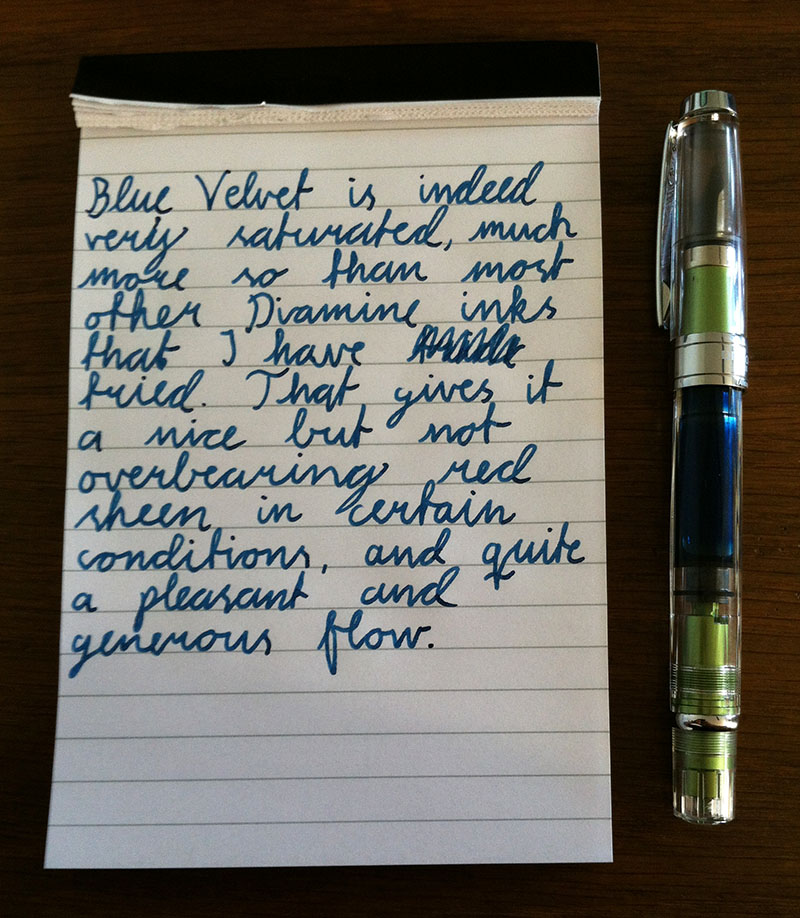 Blue Velvet is indeed
very saturated, much
more so than most
other Diamine inks
that I have
tried. That gives it
a nice but not
overbearing red
sheen in certain
conditions, and quite
a pleasant and
generous flow.